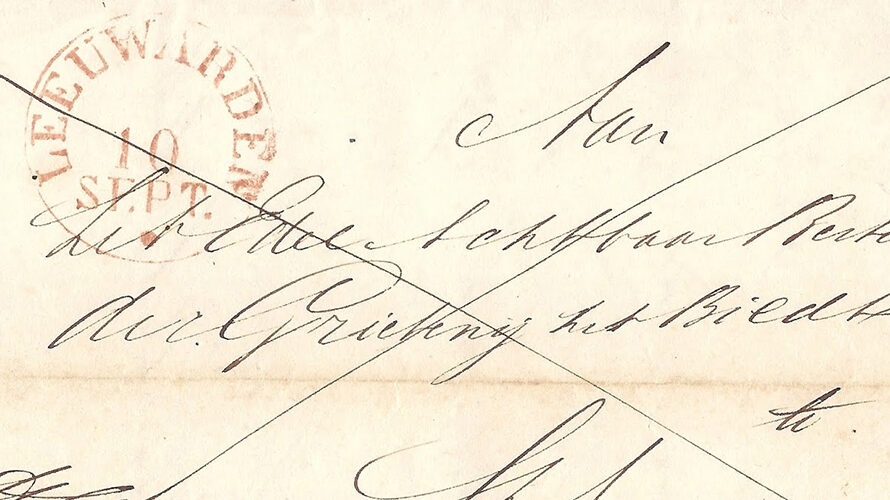 LEEUWARDEN
10
SEPT.
Aan
het Edel Achtbaar Bestu
der Grietenij het Bildt
te
St